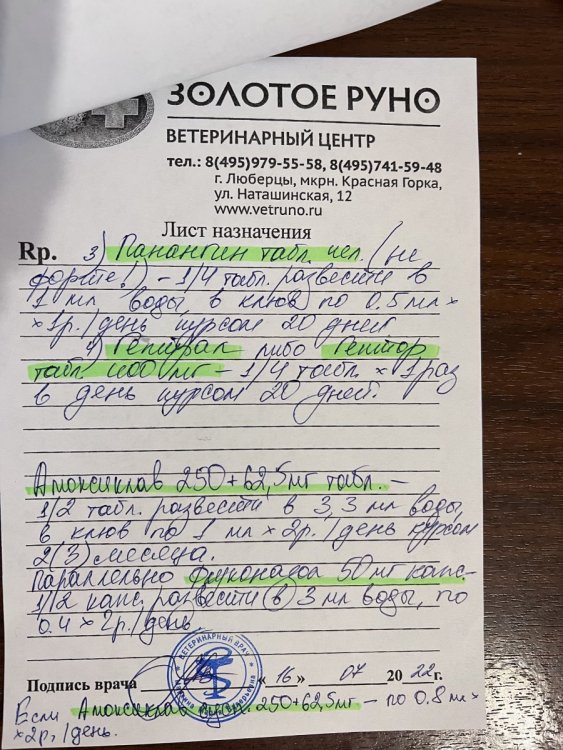 ЗОЛОТОЕ РУНО
ВЕТЕРИНАРНЫЙ ЦЕНТР
тел.: 8(495)979-55-58, 8(495)741-59-48
г. Люберцы, мкрн. Красная Горка,
ул. Наташинская, 12
www.vetruno.ru
Лист назначения
Rp. 3) Панангин табл. чел. (не
форте!) – 1/4 табл. развести в
1 мл воды, в клюв по 0.5 мл ×
× 1р./день курсом 20 дней
4) Гептрал либо Гептор
табл 400 мг – 1/4 табл × 1 раз
в день курсом 20 дней.
Амоксиклав 250+62,5мг табл. –
1/2 табл. развести в 3,3 мл воды,
в клюв по 1 мл × 2р./день курсом
2(3) месяца.
Параллельно Флуконазол 50 мг капс.
1/2 капс. развести в 3 мл воды, по
0.4 × 2р./день.
ВЕТЕРИНАРНЫЙ ВРАЧ
Подпись врача « 16 » 07 20 22 г.
Если Амоксиклав 250+62,5мг – по 0.8 мл ×
×2р./день.